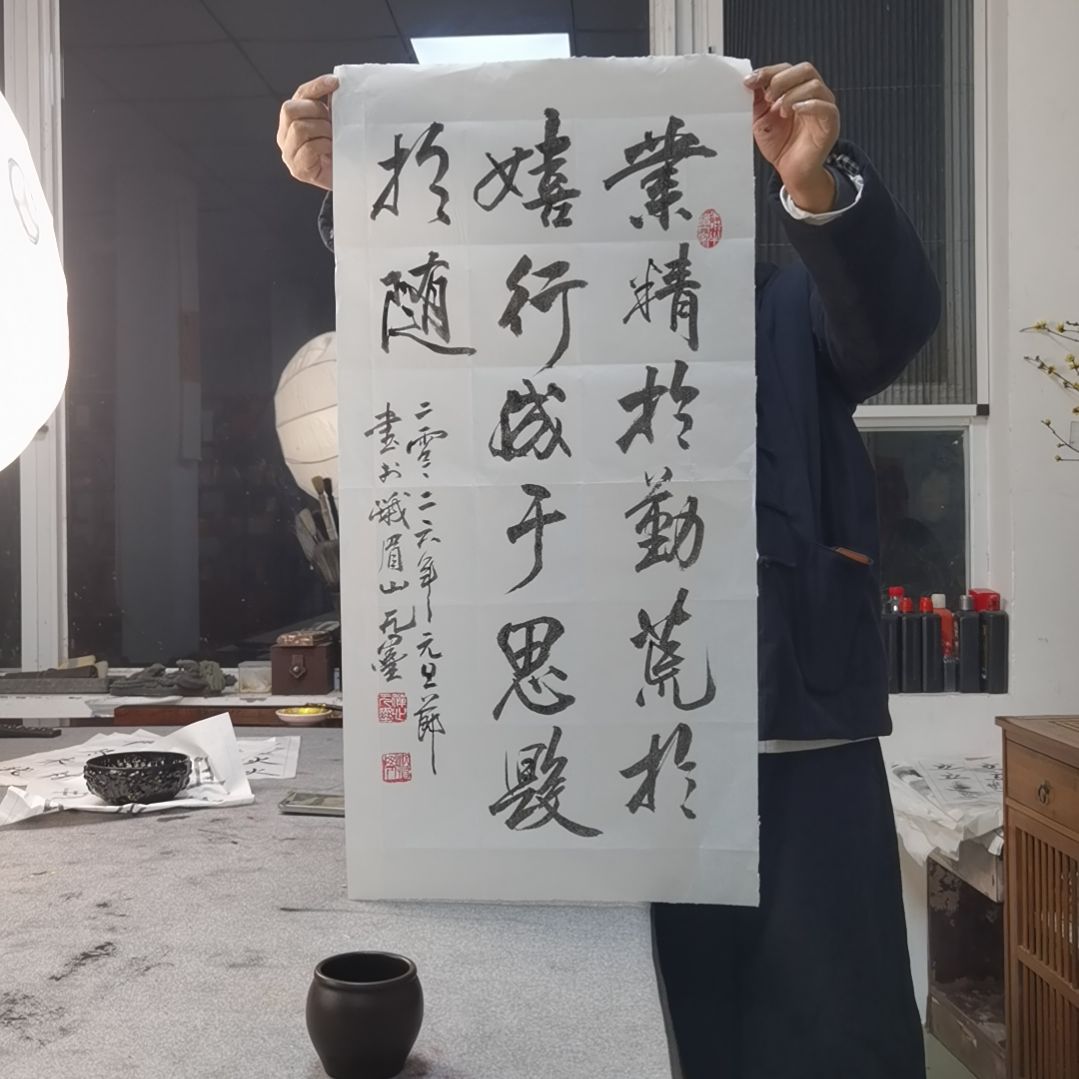 業精於勤荒於
嬉行成于思毀
於随
二零二六年元旦節
書於峨眉山瓦屋